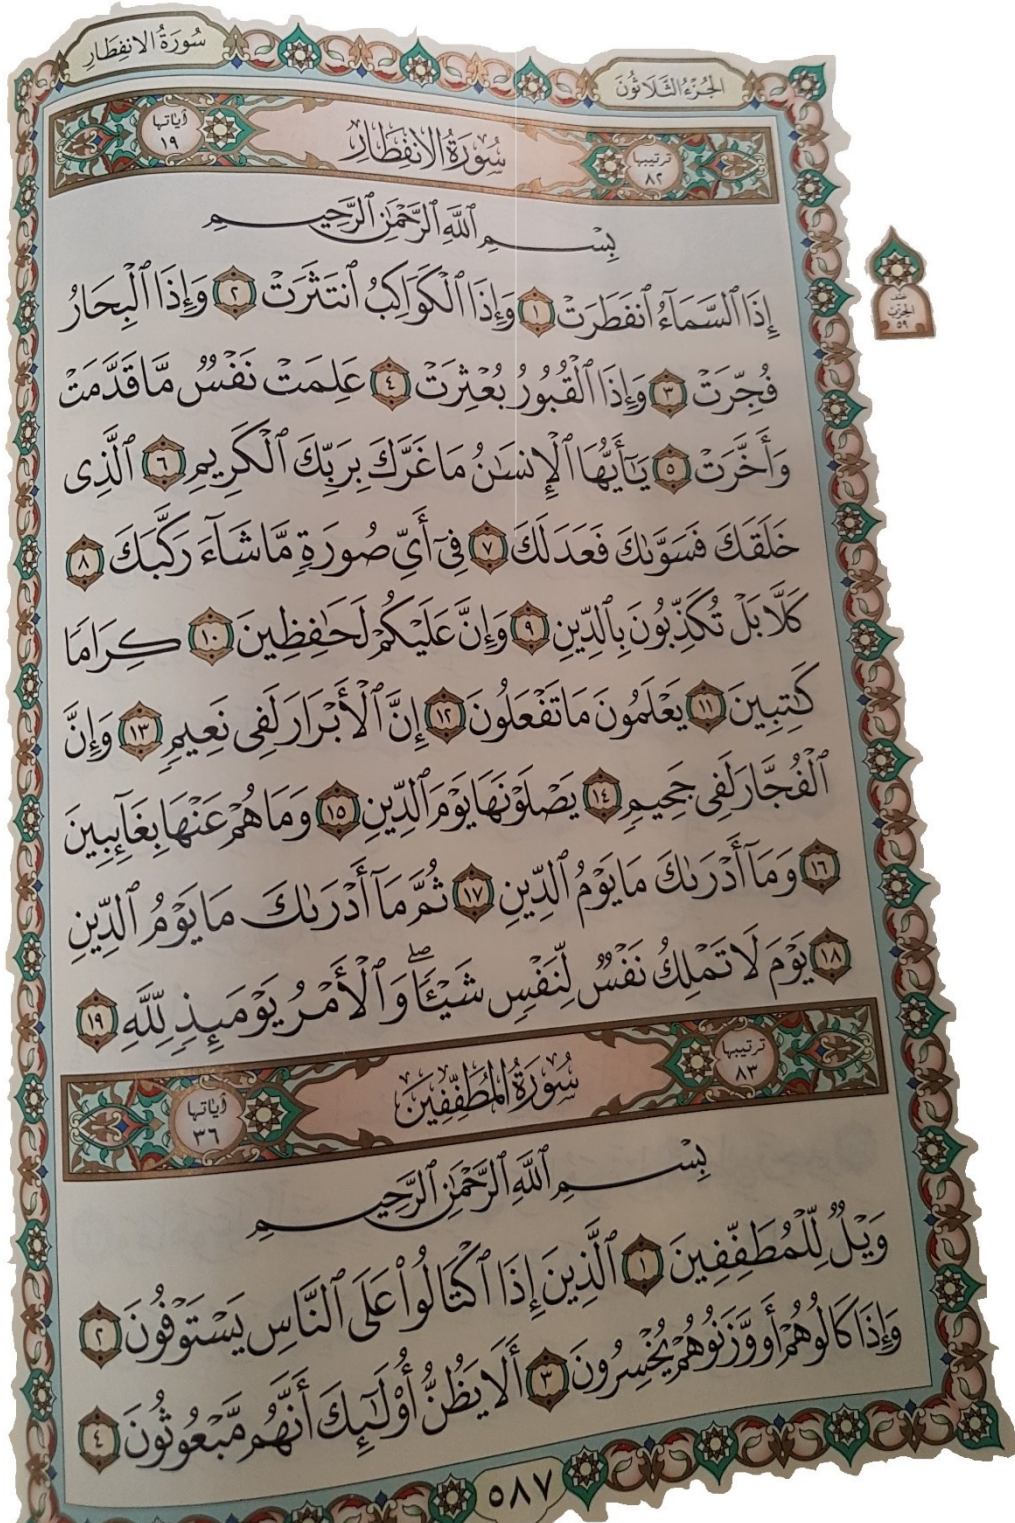 الجُزْءُ الثَّلَاثُونَ
سُورَةُ الانفِطَارِ
ترتيبها ٨٢
سُورَةُ الانفِطَارِ
آياتها ١٩
بِسْمِ ٱللَّهِ ٱلرَّحْمَٰنِ ٱلرَّحِيمِ
إِذَا ٱلسَّمَآءُ ٱنفَطَرَتْ ١ وَإِذَا ٱلْكَوَاكِبُ ٱنتَثَرَتْ ٢ وَإِذَا ٱلْبِحَارُ
فُجِّرَتْ ٣ وَإِذَا ٱلْقُبُورُ بُعْثِرَتْ ٤ عَلِمَتْ نَفْسٌ مَّا قَدَّمَتْ
وَأَخَّرَتْ ٥ يَٰٓأَيُّهَا ٱلْإِنسَٰنُ مَا غَرَّكَ بِرَبِّكَ ٱلْكَرِيمِ ٦ ٱلَّذِى
خَلَقَكَ فَسَوَّىٰكَ فَعَدَلَكَ ٧ فِىٓ أَىِّ صُورَةٍ مَّا شَآءَ رَكَّبَكَ ٨
كَلَّا بَلْ تُكَذِّبُونَ بِٱلدِّينِ ٩ وَإِنَّ عَلَيْكُمْ لَحَٰفِظِينَ ١٠ كِرَامًا
كَٰتِبِينَ ١١ يَعْلَمُونَ مَا تَفْعَلُونَ ١٢ إِنَّ ٱلْأَبْرَارَ لَفِى نَعِيمٍ ١٣ وَإِنَّ
ٱلْفُجَّارَ لَفِى جَحِيمٍ ١٤ يَصْلَوْنَهَا يَوْمَ ٱلدِّينِ ١٥ وَمَا هُمْ عَنْهَا بِغَآئِبِينَ
١٦ وَمَآ أَدْرَىٰكَ مَا يَوْمُ ٱلدِّينِ ١٧ ثُمَّ مَآ أَدْرَىٰكَ مَا يَوْمُ ٱلدِّينِ
١٨ يَوْمَ لَا تَمْلِكُ نَفْسٌ لِّنَفْسٍ شَيْـًٔا ۖ وَٱلْأَمْرُ يَوْمَئِذٍ لِّلَّهِ ١٩
ترتيبها ٨٣
سُورَةُ المُطَفِّفِينَ
آياتها ٣٦
بِسْمِ ٱللَّهِ ٱلرَّحْمَٰنِ ٱلرَّحِيمِ
وَيْلٌ لِّلْمُطَفِّفِينَ ١ ٱلَّذِينَ إِذَا ٱكْتَالُوا۟ عَلَى ٱلنَّاسِ يَسْتَوْفُونَ ٢
وَإِذَا كَالُوهُمْ أَو وَّزَنُوهُمْ يُخْسِرُونَ ٣ أَلَا يَظُنُّ أُو۟لَٰٓئِكَ أَنَّهُم مَّبْعُوثُونَ ٤
٥٨٧
الحزب
٥٩